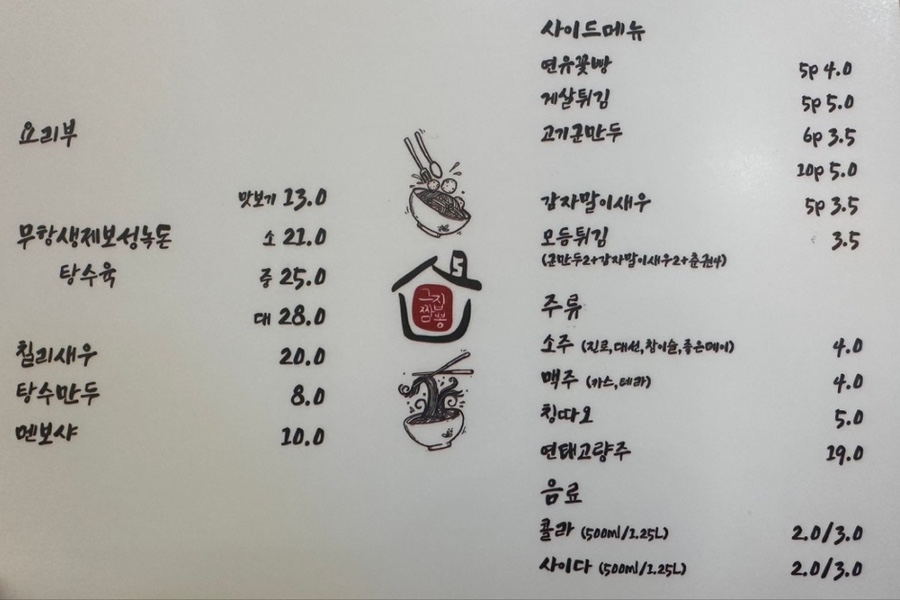 요리부
맛보기 13.0
무항생제보성녹돈 소 21.0
탕수육 중 25.0
대 28.0
칠리새우 20.0
탕수만두 8.0
멘보샤 10.0
그집
짬뽕
사이드메뉴
연유꽃빵 5p 4.0
게살튀김 5p 5.0
고기군만두 6p 3.5
10p 5.0
감자말이새우 5p 3.5
모듬튀김 3.5
(군만두2+감자말이새우2+춘권4)
주류
소주 (진로,대선,참이슬,좋은데이) 4.0
맥주 (카스,테라) 4.0
칭따오 5.0
연태고량주 19.0
음료
콜라 (500ml/1.25L) 2.0/3.0
사이다 (500ml/1.25L) 2.0/3.0